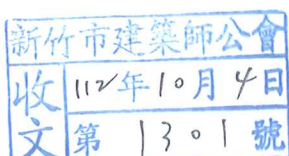 新竹市建築師公會
收文
112年10月4日
第1301號